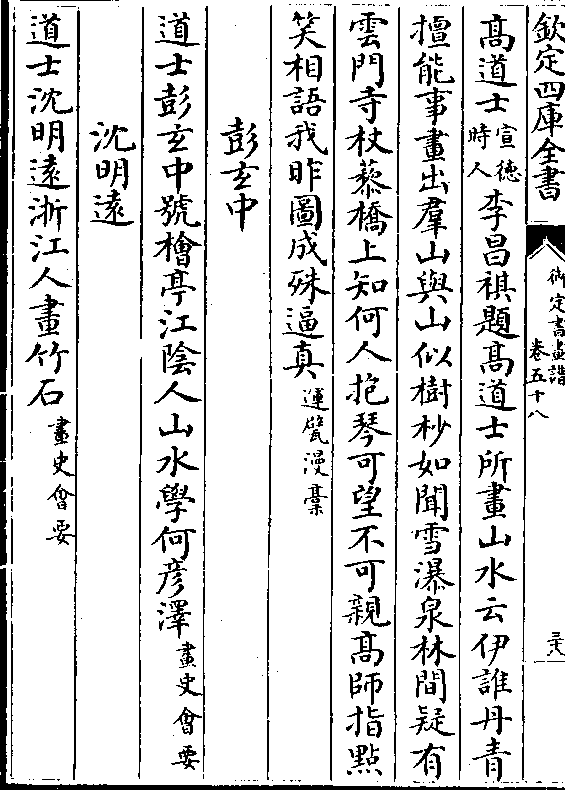 欽定四庫全書
御定書畫譜
卷五十八
三十八
高道士宣德時人李昌祺題高道士所畫山水云伊誰丹青
擅能事畫出羣山與山似樹杪如聞雪瀑泉林間疑有
雲門寺杖藜橋上知何人抱琴可望不可親高師指點
笑相語我昨圖成殊逼真運甓漫藁
彭玄中
道士彭玄中號檜亭江陰人山水學何彥澤畫史會要
沈明遠
道士沈明遠浙江人畫竹石畫史會要